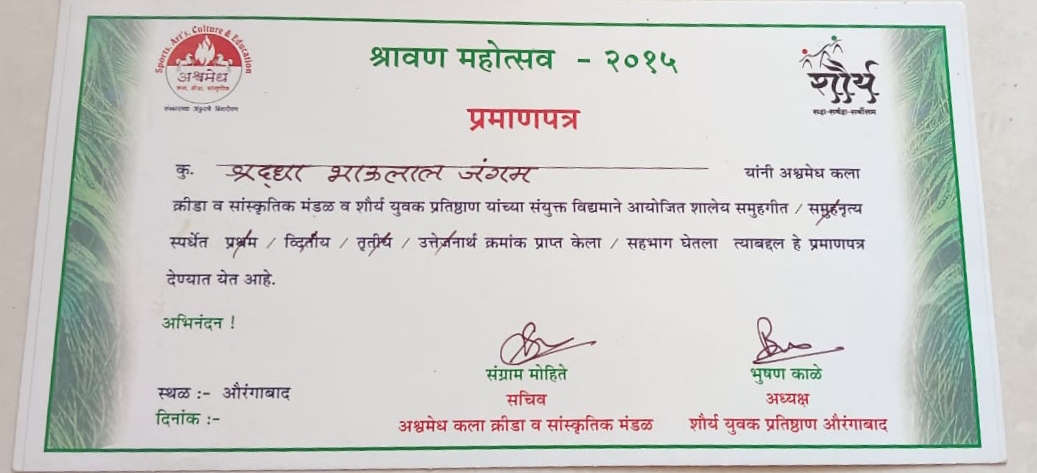 Sports, Art's, Culture & Education
अश्वमेध
कला, क्रीडा, सांस्कृतिक
श्रावण महोत्सव - २०१५
शौर्य
सदा-सर्वदा-सर्वोत्तम
प्रमाणपत्र
कु. श्रद्धा भाऊलाल जंगम यांनी अश्वमेध कला
क्रीडा व सांस्कृतिक मंडळ व शौर्य युवक प्रतिष्ठाण यांच्या संयुक्त विद्यमाने आयोजित शालेय समुहगीत / समुहनृत्य
स्पर्धेत प्रथम / व्दितीय / तृतीय / उत्तेजनार्थ क्रमांक प्राप्त केला / सहभाग घेतला त्याबद्दल हे प्रमाणपत्र
देण्यात येत आहे.
अभिनंदन !
संग्राम मोहिते
भुषण काळे
स्थळ :- औरंगाबाद
सचिव
अध्यक्ष
दिनांक :-
अश्वमेध कला क्रीडा व सांस्कृतिक मंडळ
शौर्य युवक प्रतिष्ठाण औरंगाबाद